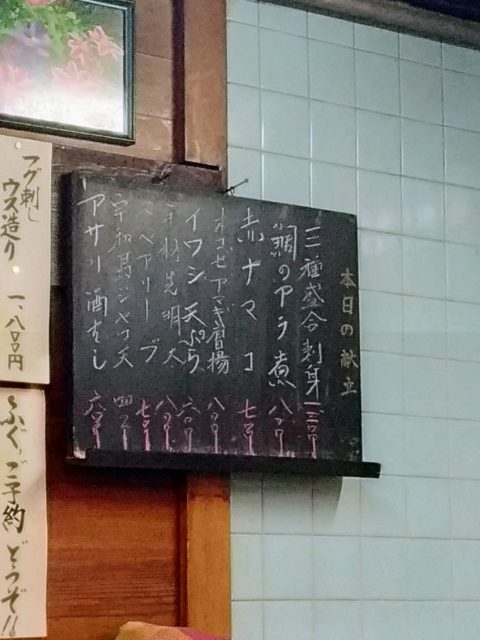 本日の献立
三種盛合刺身
鯛のアラ煮 八〇〇
赤ナマコ 七〇
オコゼアマギ唐揚 八〇〇
イワシ天ぷら 六〇〇
明太 八〇
ベアリーブ 七〇
宇和島ジャコ天 四
アサリ酒むし 六〇
フグ刺し
ウス造り
一、八〇〇円
ふくご予約
どうぞ!!